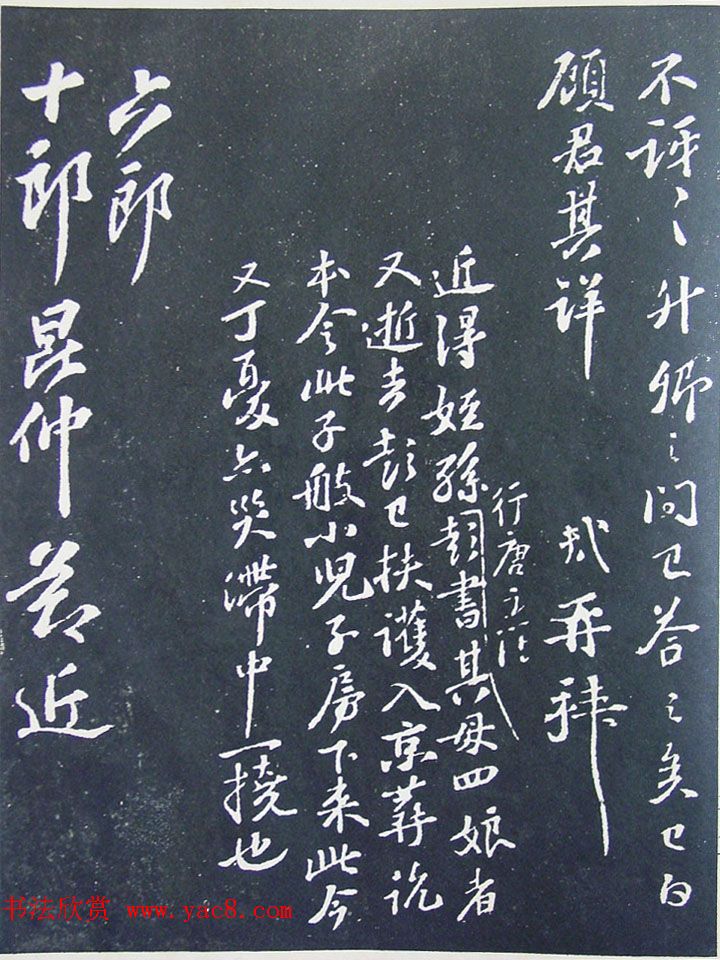 不訝〻升卿之問已答之矣已白
顧君其詳 軾再拜
行唐主簿
近得姪孫彭書其母四娘者
又逝去彭已扶護入京葬訖
本令此子般小児子房下来此今
又丁憂亦災滯中一撓也
六郎
十郎昆仲並近
书法欣赏 www.yac8.com